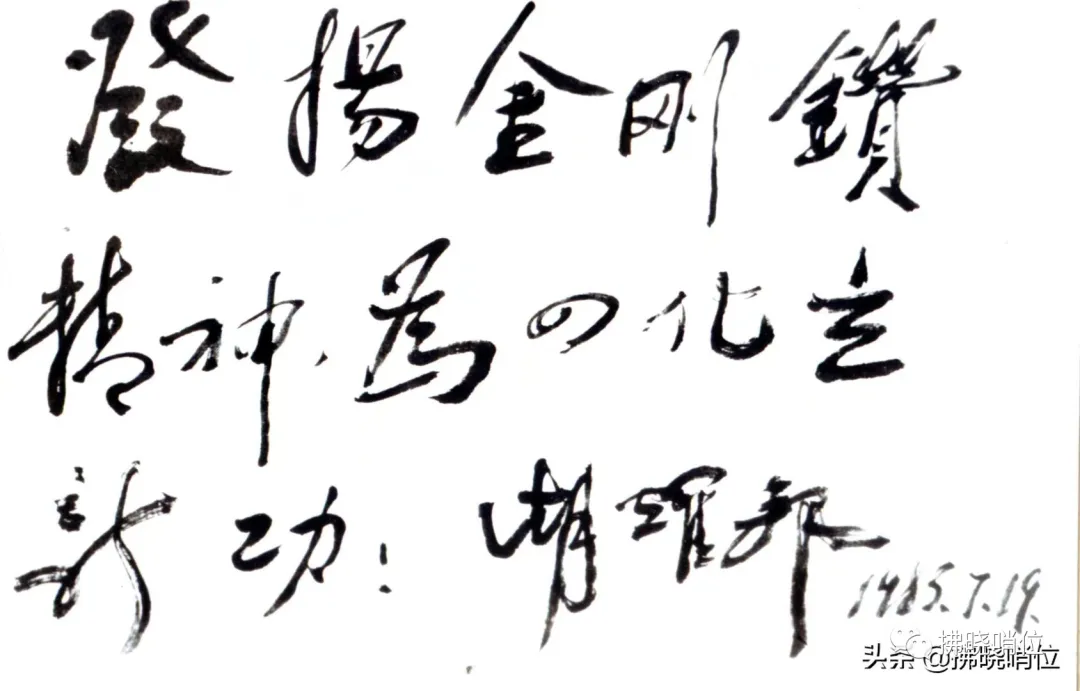 發揚金剛鑽
精神,為四化立
新功! 胡耀邦
1985.7.19.
拂晓哨位
头条 @拂晓哨位